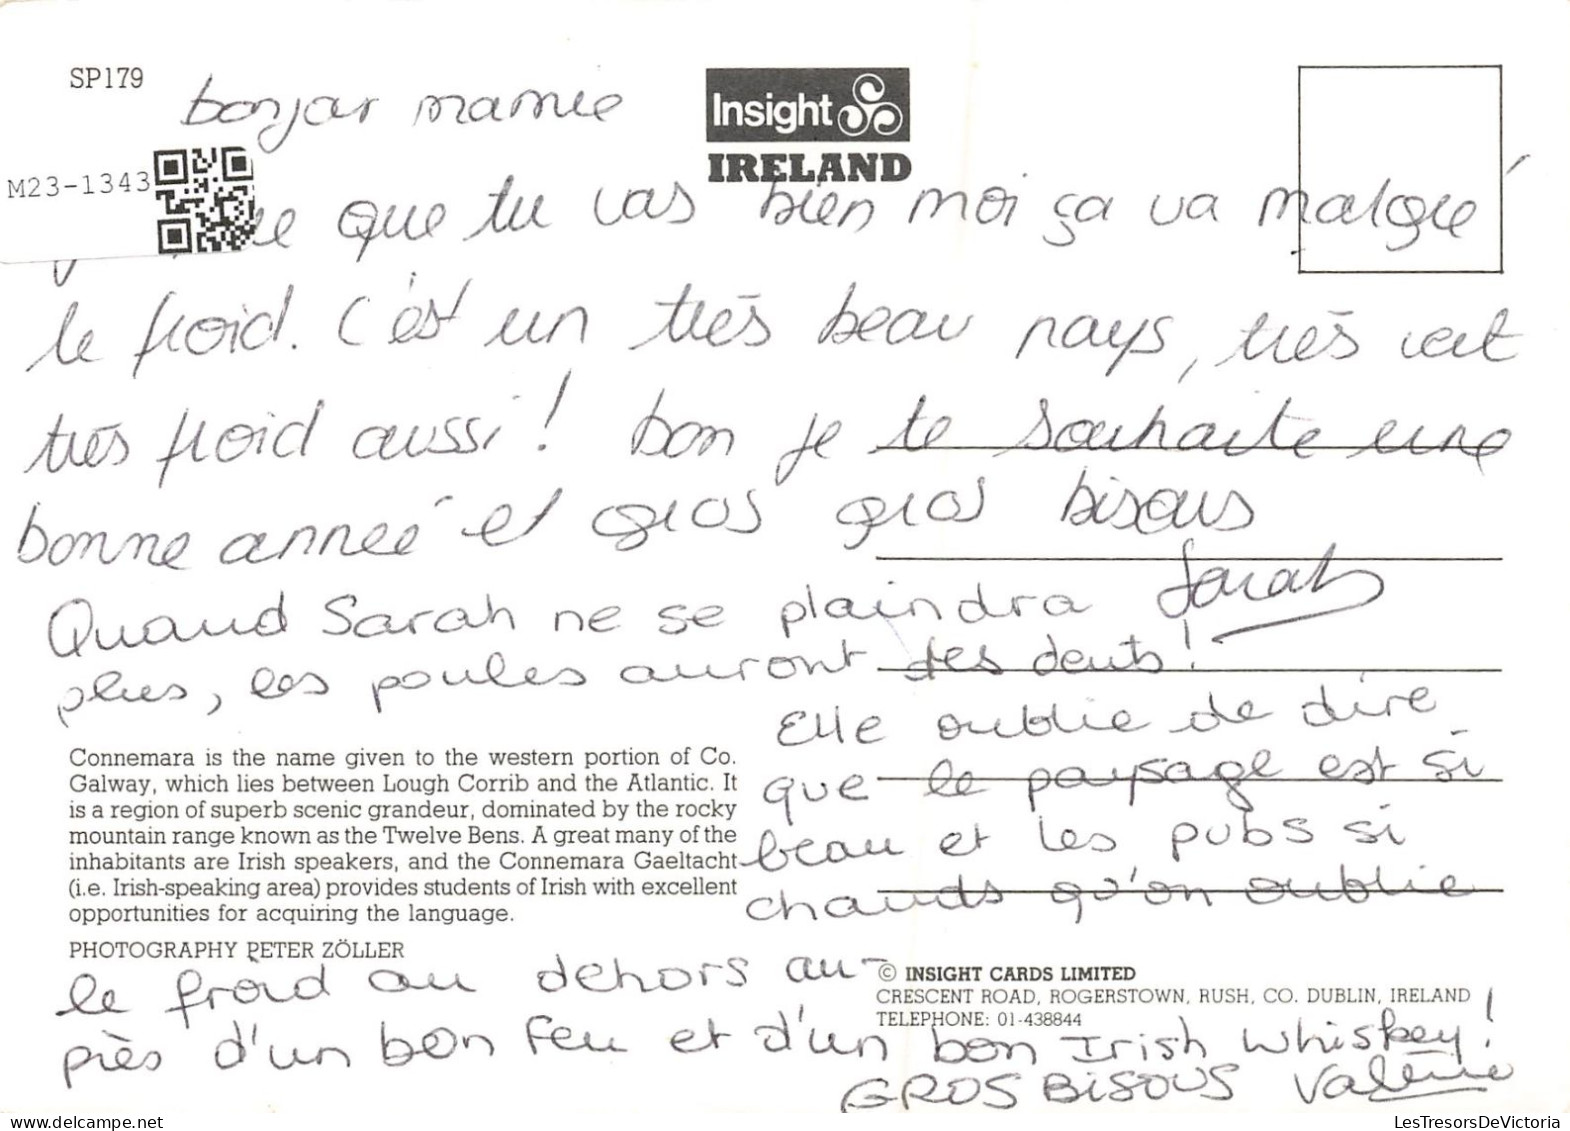 SP179
bonjour mamie
Insight
IRELAND
M23-1343
que tu vas bien moi ça va malgré
le froid. C'est un très beau pays, très vert
très froid aussi! bon je te souhaite une
bonne année et gros gros bisous
Sarah
Quand Sarah ne se plaindra
plus, les poules auront des dents!
Elle oublie de dire
que le paysage est si
beau et les pubs si
chauds qu'on oublie
le froid au dehors au-
près d'un bon feu et d'un bon Irish Whiskey!
GROS BISOUS Valérie
Connemara is the name given to the western portion of Co.
Galway, which lies between Lough Corrib and the Atlantic. It
is a region of superb scenic grandeur, dominated by the rocky
mountain range known as the Twelve Bens. A great many of the
inhabitants are Irish speakers, and the Connemara Gaeltacht
(i.e. Irish-speaking area) provides students of Irish with excellent
opportunities for acquiring the language.
PHOTOGRAPHY PETER ZÖLLER
© INSIGHT CARDS LIMITED
CRESCENT ROAD, ROGERSTOWN, RUSH, CO. DUBLIN, IRELAND
TELEPHONE: 01-438844
LesTresorsDeVictoria